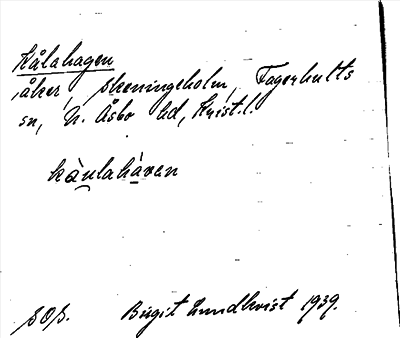 Kålahagen
åker, Skeningeholm, Fagerhults
sn, N. Åsbo hd, Krist.l.
kàulahávan
SOS. Birgit Lundkvist 1939.